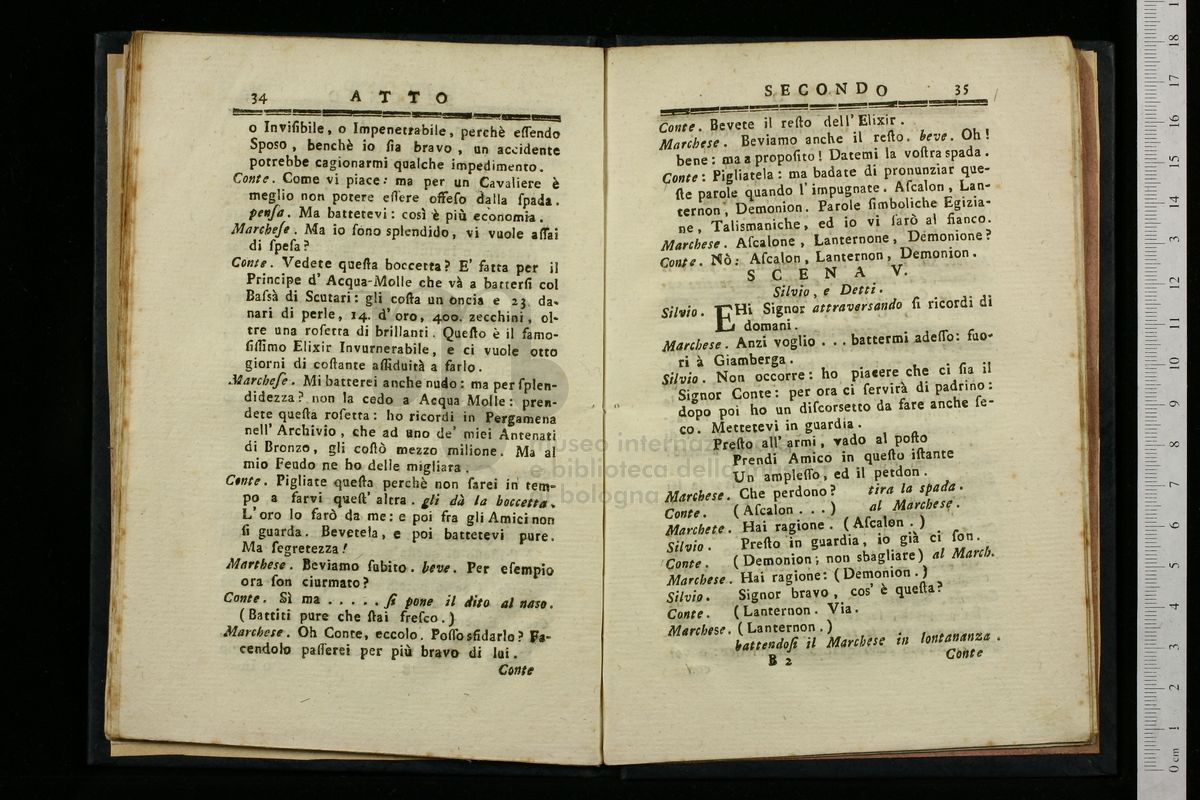 34 ATTO
o Inviſibile, o Impenetrabile, perchè eſſendo
Spoſo, benchè io ſia bravo, un accidente
potrebbe cagionarmi qualche impedimento.
Conte. Come vi piace: ma per un Cavaliere è
meglio non potere eſſere offeſo dalla ſpada.
penſa. Ma battetevi: così è più economia.
Marcheſe. Ma io ſono splendido, vi vuole aſſai
di ſpeſa?
Conte. Vedete queſta boccetta? E' fatta per il
Principe d' Acqua-Molle che và a batterſi col
Baſsà di Scutari: gli coſta un oncia e 23 da-
nari di perle, 14. d' oro, 400. zecchini, ol-
tre una roſetta di brillanti. Queſto è il famo-
ſiſſimo Elixir Invurnerabile, e ci vuole otto
giorni di coſtante aſſiduità a farlo.
Marcheſe. Mi batterei anche nudo: ma per ſplen-
didezza? non la cedo a Acqua Molle: pren-
dete queſta roſetta: ho ricordi in Pergamena
nell' Archivio, che ad uno de' miei Antenati
di Bronzo, gli coſtò mezzo milione. Ma al
mio Feudo ne ho delle migliara.
Conte. Pigliate queſta perchè non farei in tem-
po a farvi queſt' altra. gli dà la boccetta.
L'oro lo farò da me: e poi fra gli Amici non
ſi guarda. Bevetela, e poi battetevi pure.
Ma ſegretezza!
Marthese. Beviamo ſubito. beve. Per eſempio
ora ſon ciurmato?
Conte. Sì ma ..... ſi pone il dito al naso.
(Battiti pure che ſtai freſco.)
Marchese. Oh Conte, eccolo. Poſſo sfidarlo? Fa-
cendolo paſſerei per più bravo di lui.
Conte
SECONDO 35
Conte. Bevete il reſto dell' Elixir.
Marchese. Beviamo anche il reſto. beve. Oh!
bene: ma a propoſito! Datemi la voſtra spada.
Conte: Pigliatela: ma badate di pronunziar que-
ſte parole quando l' impugnate. Aſcalon, Lan-
ternon, Demonion. Parole ſimboliche Egizia-
ne, Talismaniche, ed io vi ſarò al fianco.
Marchese. Aſcalone, Lanternone, Demonione?
Conte. Nò: Aſcalon, Lanternon, Demonion.
SCENA V.
Silvio, e Detti.
Silvio. EHi Signor attraversando ſi ricordi di
domani.
Marchese. Anzi voglio ... battermi adeſſo: fuo-
ri à Giamberga.
Silvio. Non occorre: ho piacere che ci ſia il
Signor Conte: per ora ci ſervirà di padrino:
dopo poi ho un diſcorsetto da fare anche ſe-
co. Mettetevi in guardia.
Preſto all' armi, vado al poſto
Prendi Amico in queſto iſtante
Un ampleſſo, ed il perdon.
Marchese. Che perdono? tira la spada.
Conte. (Aſcalon ...) al Marchese.
Marchete. Hai ragione. (Aſcalon.)
Silvio. Preſto in guardia, io già ci ſon.
Conte. (Demonion; non sbagliare) al March.
Marchese. Hai ragione: (Demonion.)
Silvio. Signor bravo, cos' è queſta?
Conte. (Lanternon. Via.
Marchese. (Lanternon.)
battendoſi il Marchese in lontananza.
B 2 Conte
museo internaz
e biblioteca della mu
bologna
0 cm 1 2 3 4 5 6 7 8 9 10 11 12 13 14 15 16 17 18